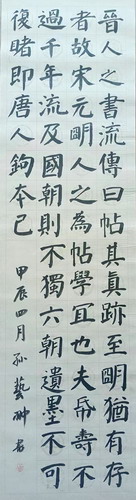 晉人之書流傳曰帖其真跡至明猶有存
者故宋元明人之為帖學宜也夫帋壽不
過千年流及國朝則不獨六朝遺墨不可
復睹即唐人鉤本已
甲辰四月孫藝